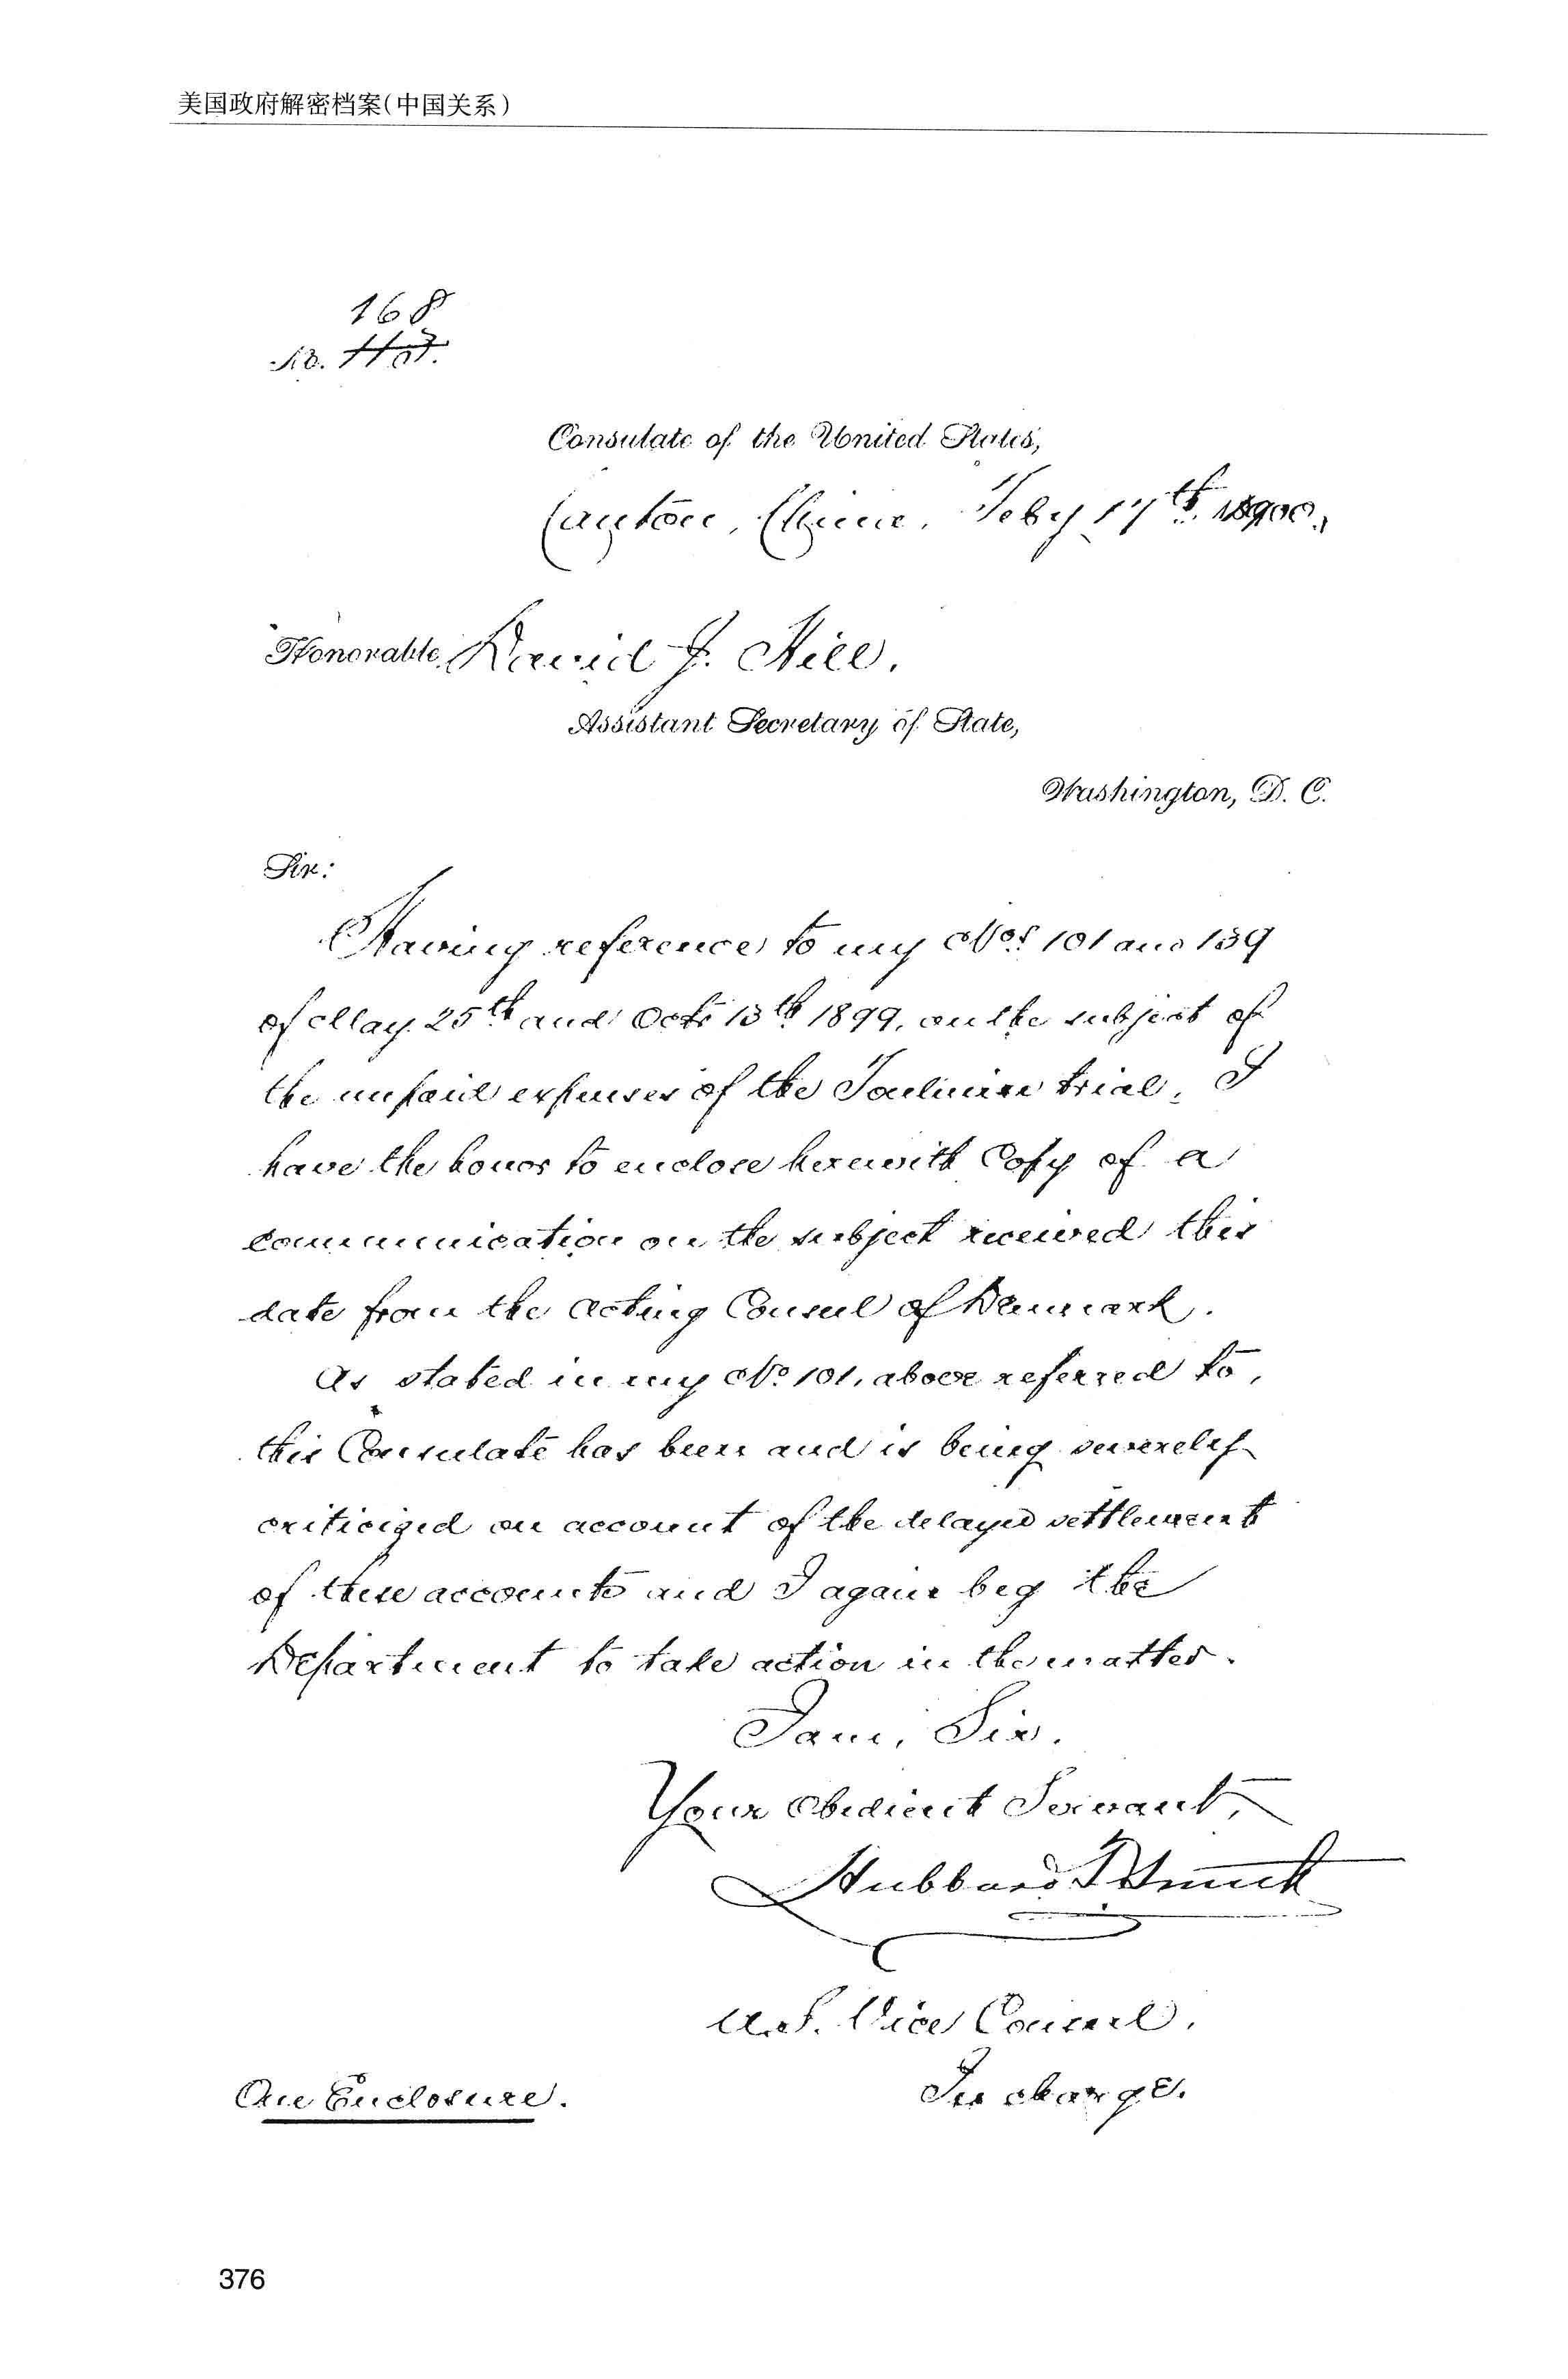 美国政府解密档案(中国关系)
168
No.
Consulate of the United States,
Canton, China, Feby 17th. 1900.
Honorable David J. Hill.
Assistant Secretary of State,
Washington, D. C.
Sir:
Having reference to my Nos 101 and 139
of May 25th and Oct: 13th 1899, on the subject of
the unpaid expenses of the trial, I
have the honor to enclose herewith Copy of a
communication on the subject received this
date from the Acting Consul of Denmark.
As stated in my No 101, above referred to,
this Consulate has been and is being severely
criticized on account of the delayed settlement
of these accounts and I again beg the
Department to take action in the matter.
I am, Sir.
Your Obedient Servant,
Hubbard T. Smith
U.S. Vice Consul.
In charge.
One Enclosure.
376